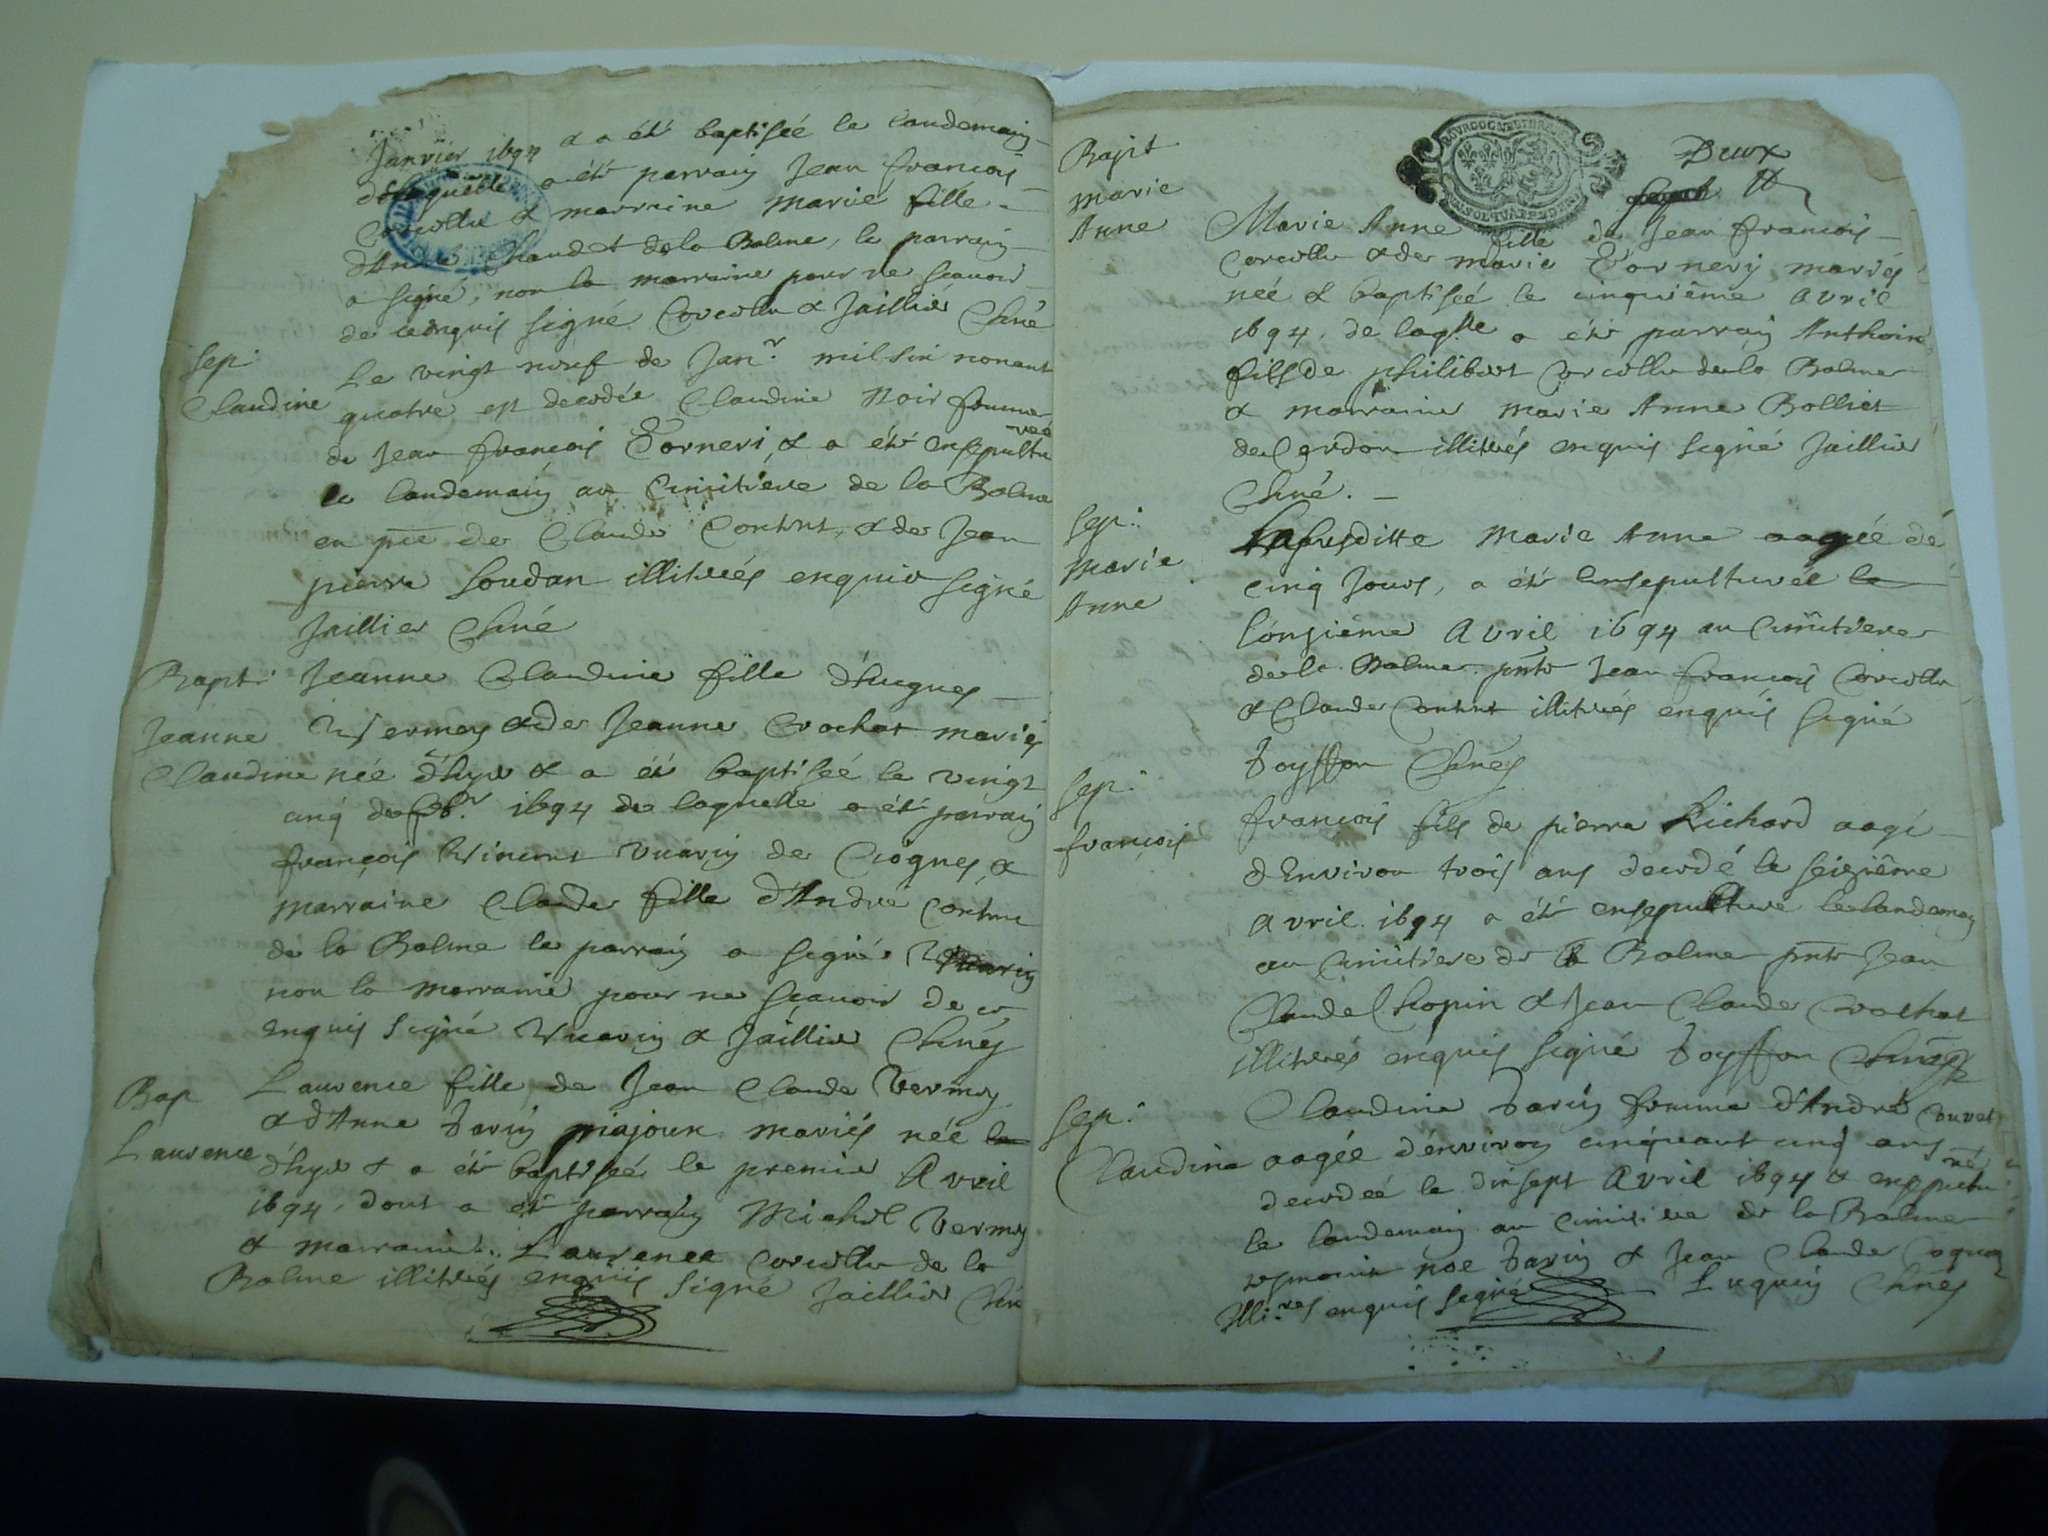 Janvier 1694 & a été baptisée le landemain
de laquelle a été parrain Jean françois
Corcellu & marraine marie fille
d'André Chaudet de la Balme, le parrain
a signé, non la marraine pour ne scavoir
de ce enquis signé Corcellu & Jaillier Curé
Sep:
Claudine
Le vingt neuf de Janr. mil six nonant
quatre est decedée Claudine Noir femme
de Jean françois Torneri, & a été ensepulturée
le landemain au Cimitiere de la Balme
en pce de Claude Contet, & de Jean
pierre Soudan illiterés enquis signé
Jaillier Curé
Bapt:
Jeanne
Claudine
Jeanne Claudine fille d'hugues
Vermey & de Jeanne Crochet mariés
née d'hyer & a été baptisée le vingt
cinq de febr. 1694 de laquelle a été parrain
françois Vincent Vuarin de Crognes, &
marraine Claude fille d'André
de la Balme le parrain a signé
non la marraine pour ne scavoir de ce
enquis signé Vuarin & Jaillier Curés
Bap
Laurence
Laurence fille de Jean Claude Vermey
& d'Anne Tavin majour mariés née
d'hyer & a été baptisée le premier Avril
1694, dont a été parrain Michel Vermey
& marraine Laurence Corcellu de la
Balme illiterés enquis signé Jaillier Curé
Deux
Bapt
marie
Anne
Marie Anne fille de Jean françois
Corcellu & de marie Tornery mariés
née & baptisée le cinquiême Avril
1694, de laqlle a été parrain Anthoine
fils de philibert Corcellu de la Balme
& marraine marie Anne Bolliet
de Cerdon illiterés enquis signé Jaillier
Curé.
Sep:
Marie
Anne
La susditte Marie Anne aagée de
cinq Jours, a été ensepulturée le
l'onziême Avril 1694 au Cimitiere
de la Balme pnts Jean françois Corcellu
& Claude Contet illiterés enquis signé
Toysson Curés
Sep:
françois
françois fils de pierre Richard aagé
d'Environ trois ans decedé le seiziême
Avril 1694 a été ensepulturé le landemain
au Cimitiere de la Balme pnts Jean
Claude Chopin & Jean Claude Crochet
illiterés enquis signé Toysson Curés
Sep:
Claudine
Claudine Tavin femme d'André
aagée d'environ cinquant cinq ans
decedeé le dix sept Avril 1694 &
le landemain au Cimitiere de la Balme
noe Tavin & Jean Claude
enquis signé Luquin Curés